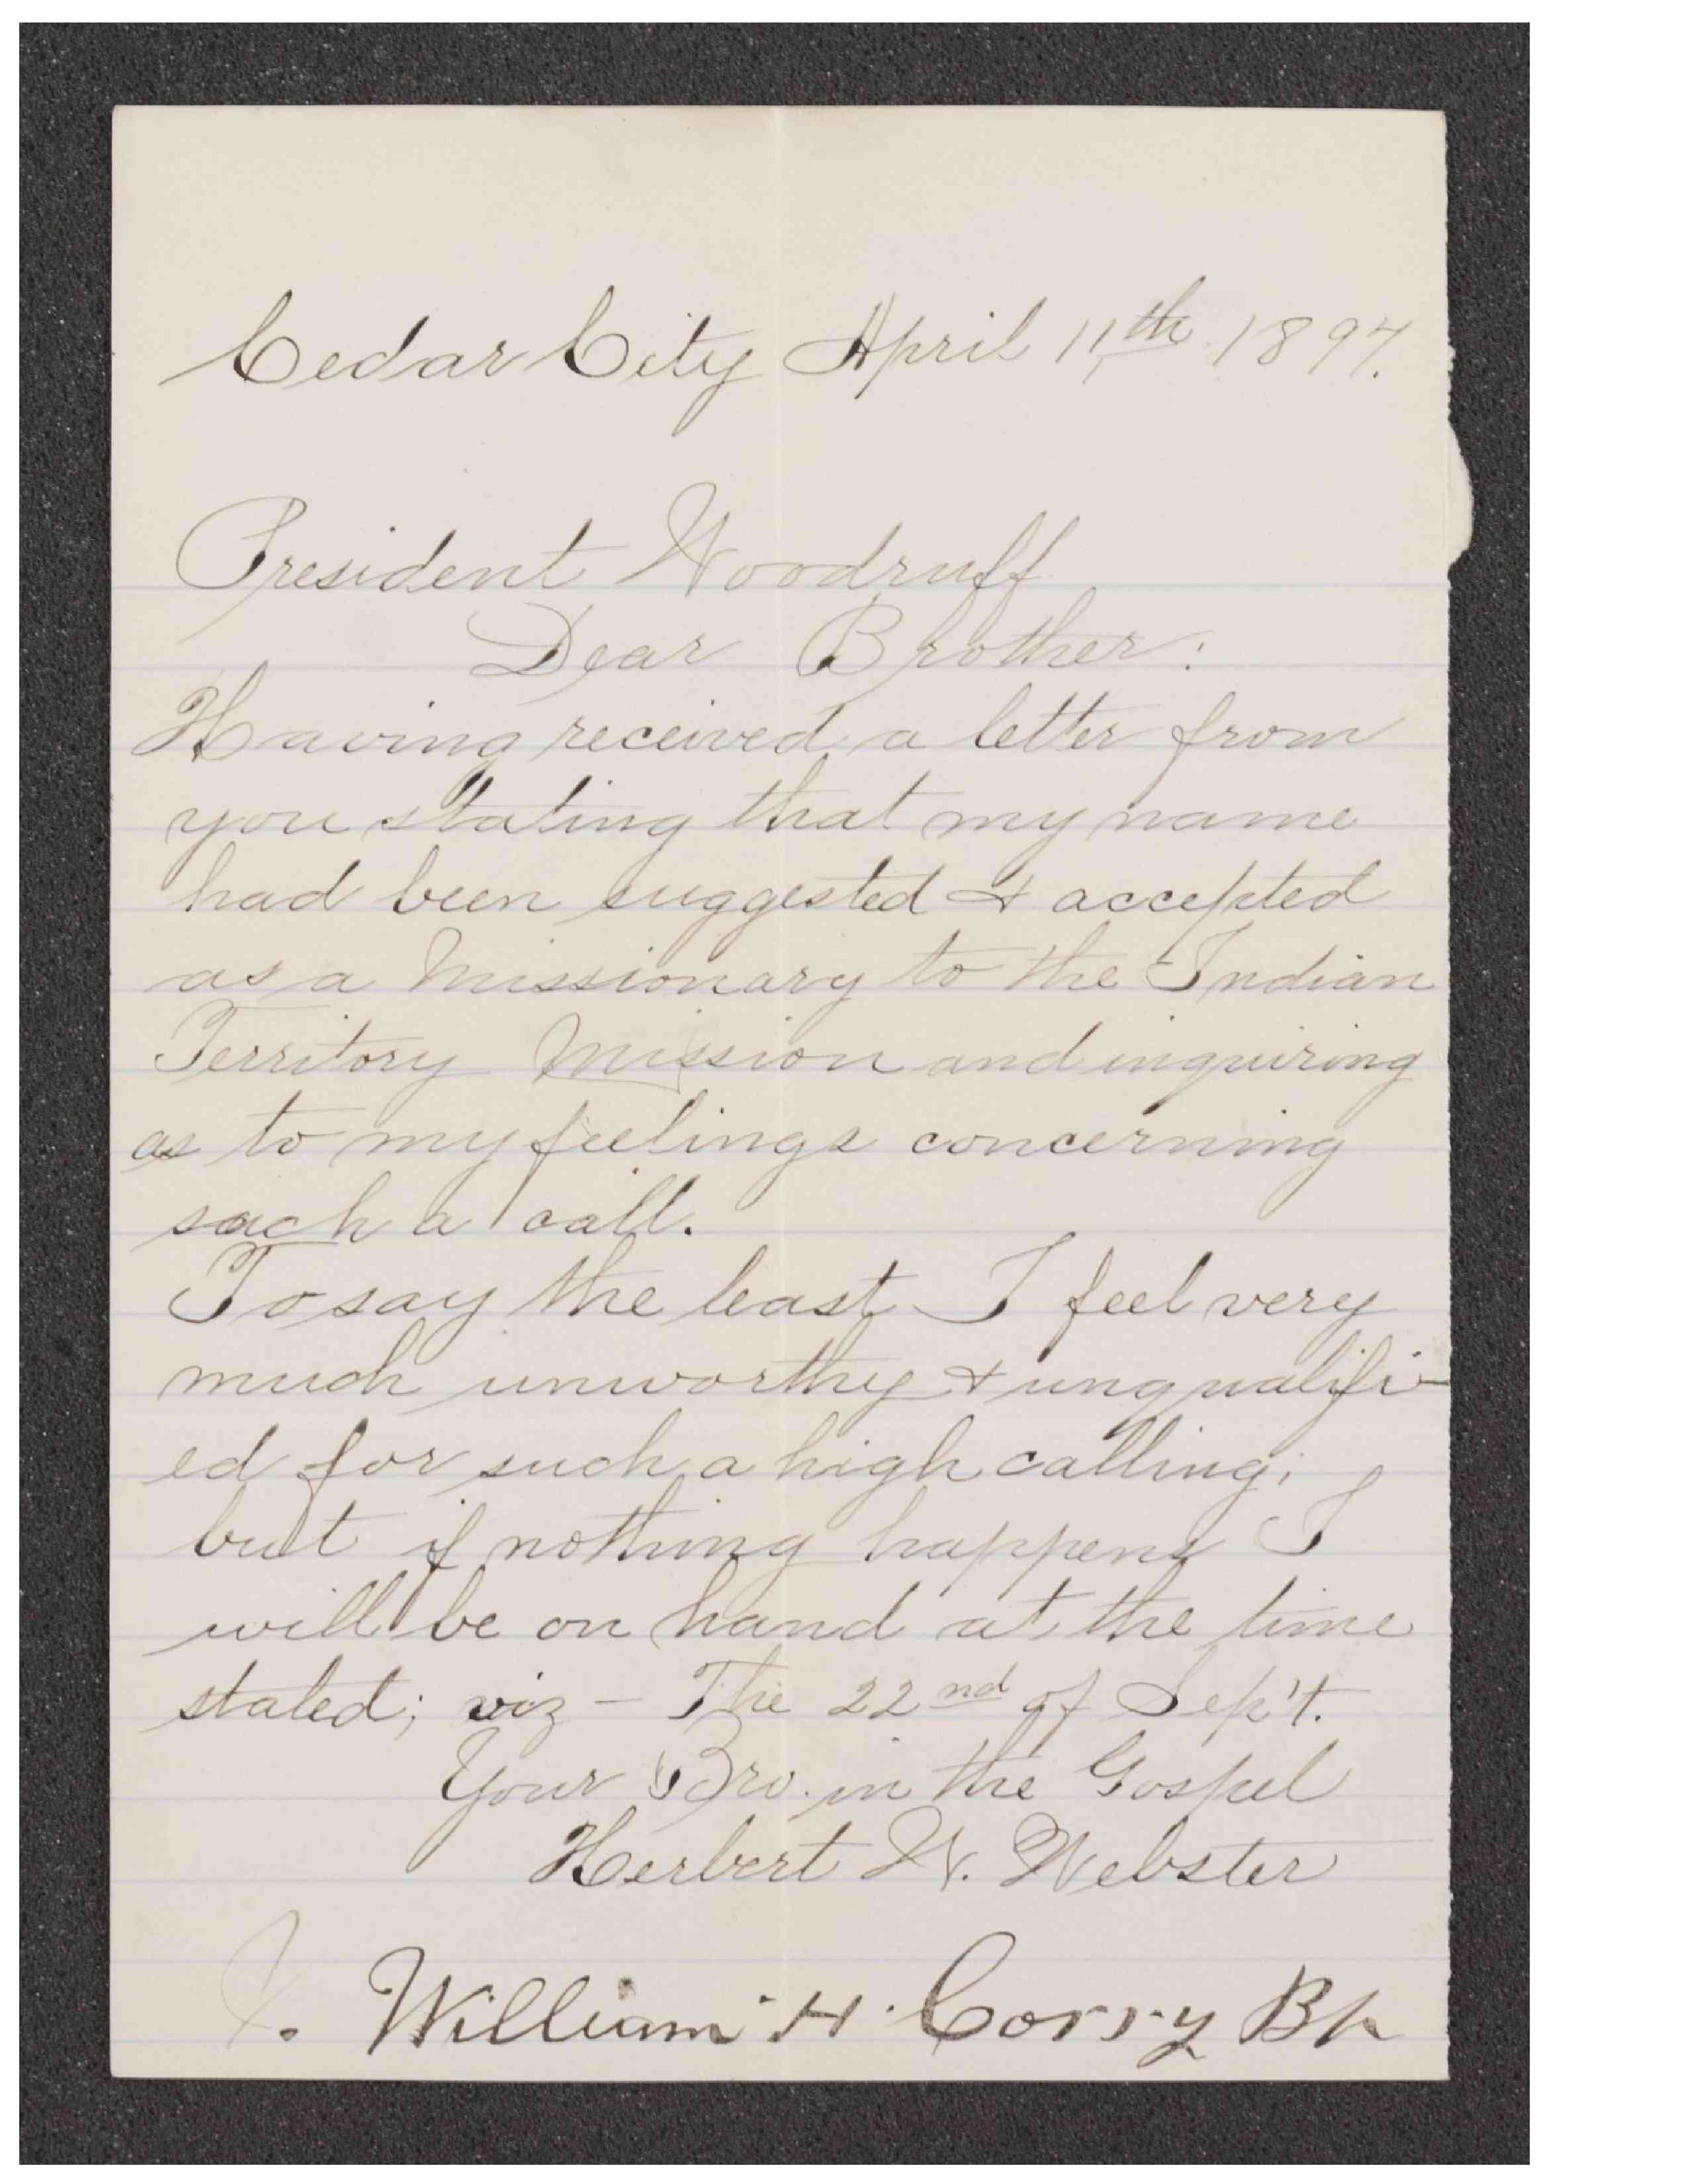 Cedar City April 11,th 1897.
President Woodruff
Dear Brother:
Having received a letter from
you stating that my name
had been suggested & accepted
as a Missionary to the Indian
Territory Mission and inquiring
as to my feelings concerning
such a call.
To say the least I feel very
much unworthy & unqualifi-
ed for such a high calling;
but if nothing happens I
will be on hand at the time
stated; viz - The 22nd of Sep't.
Your Bro. in the Gospel
Herbert W. Webster
William H. Corry Bp